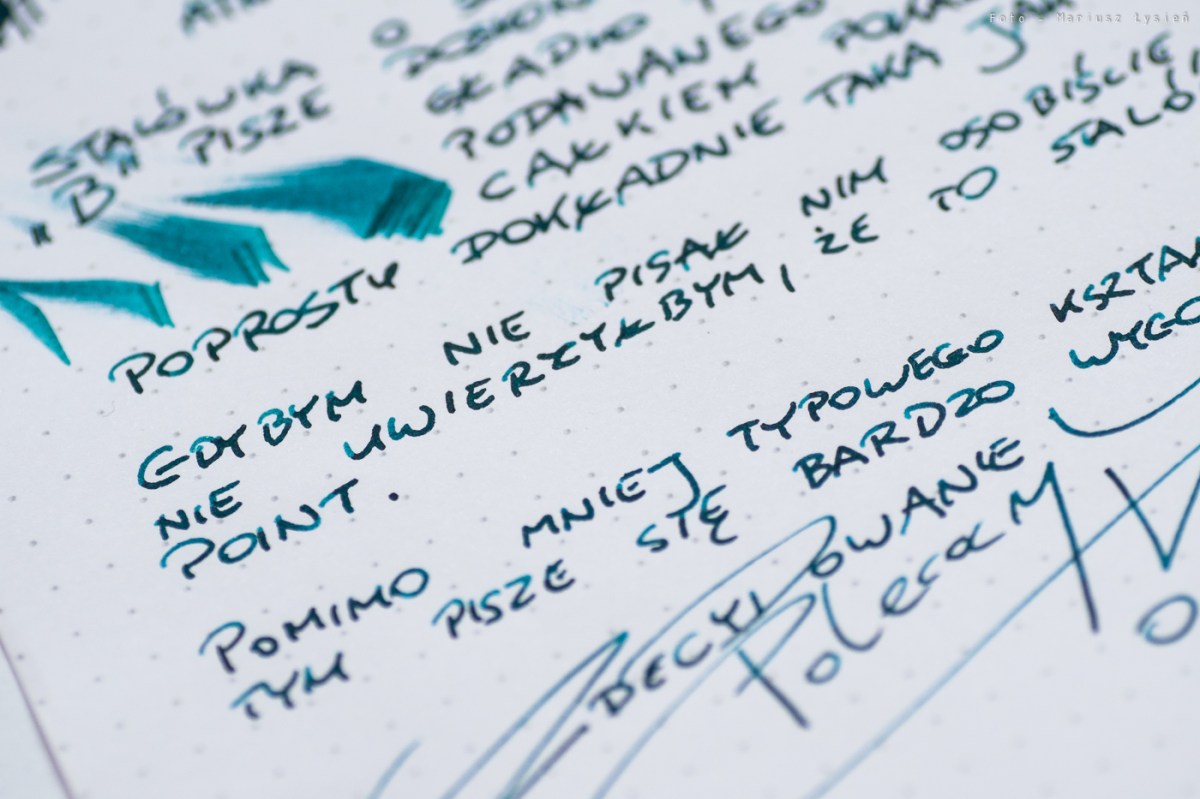 Foto - Mariusz Łysień
STALÓWKA
„B" PISZE GŁADKO
PODAWANEGO
CAŁKIEM
POPROSTU DOKŁADNIE TAKA
GDYBYM NIE PISAŁ NIM OSOBIŚCIE
NIE UWIERZYŁBYM, ŻE TO STALÓ
POINT.
POMIMO MNIEJ TYPOWEGO KSZTAŁ
TYM PISZE SIĘ BARDZO WYGO
ZDECYDOWANIE
Polecam